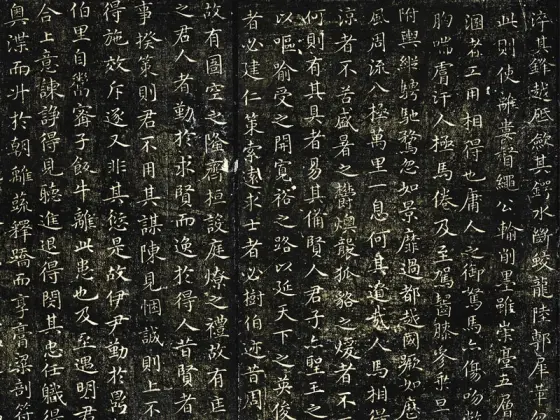 淬其鋒越砥斂其鍔水斷蛟龍陸剸犀革
此則使離婁督繩公輸削墨雖崇臺五層
溷者工用相得也庸人之御駑馬亦傷吻
胸喘膚汗人極馬倦及至駕齧膝參乘旦
附輿縱騁馳騖忽如景靡過都越國蹶如歷
風周流八極萬里一息何其遼哉人馬相得
涼者不苦盛暑之鬱燠襲狐貉之煖者不
何則有其具者易其備賢人君子亦聖王之
以嘔喻受之開寬裕之路以延天下之英俊
者必建仁策索遠求士者必樹伯迹昔周
故有圄空之隆齊桓設庭燎之禮故有匡
之君人者勤於求賢而逸於得人昔賢者
事揆策則君不用其謀陳見悃誠則上不
得施效斥逐又非其愆是故伊尹勤於鼎
伯里自鬻甯子飯牛離此患也及至遇明君
合上意諫諍得見聽進退得關其忠任職得
奧渫而升於朝離疏釋蹻而享膏粱剖符